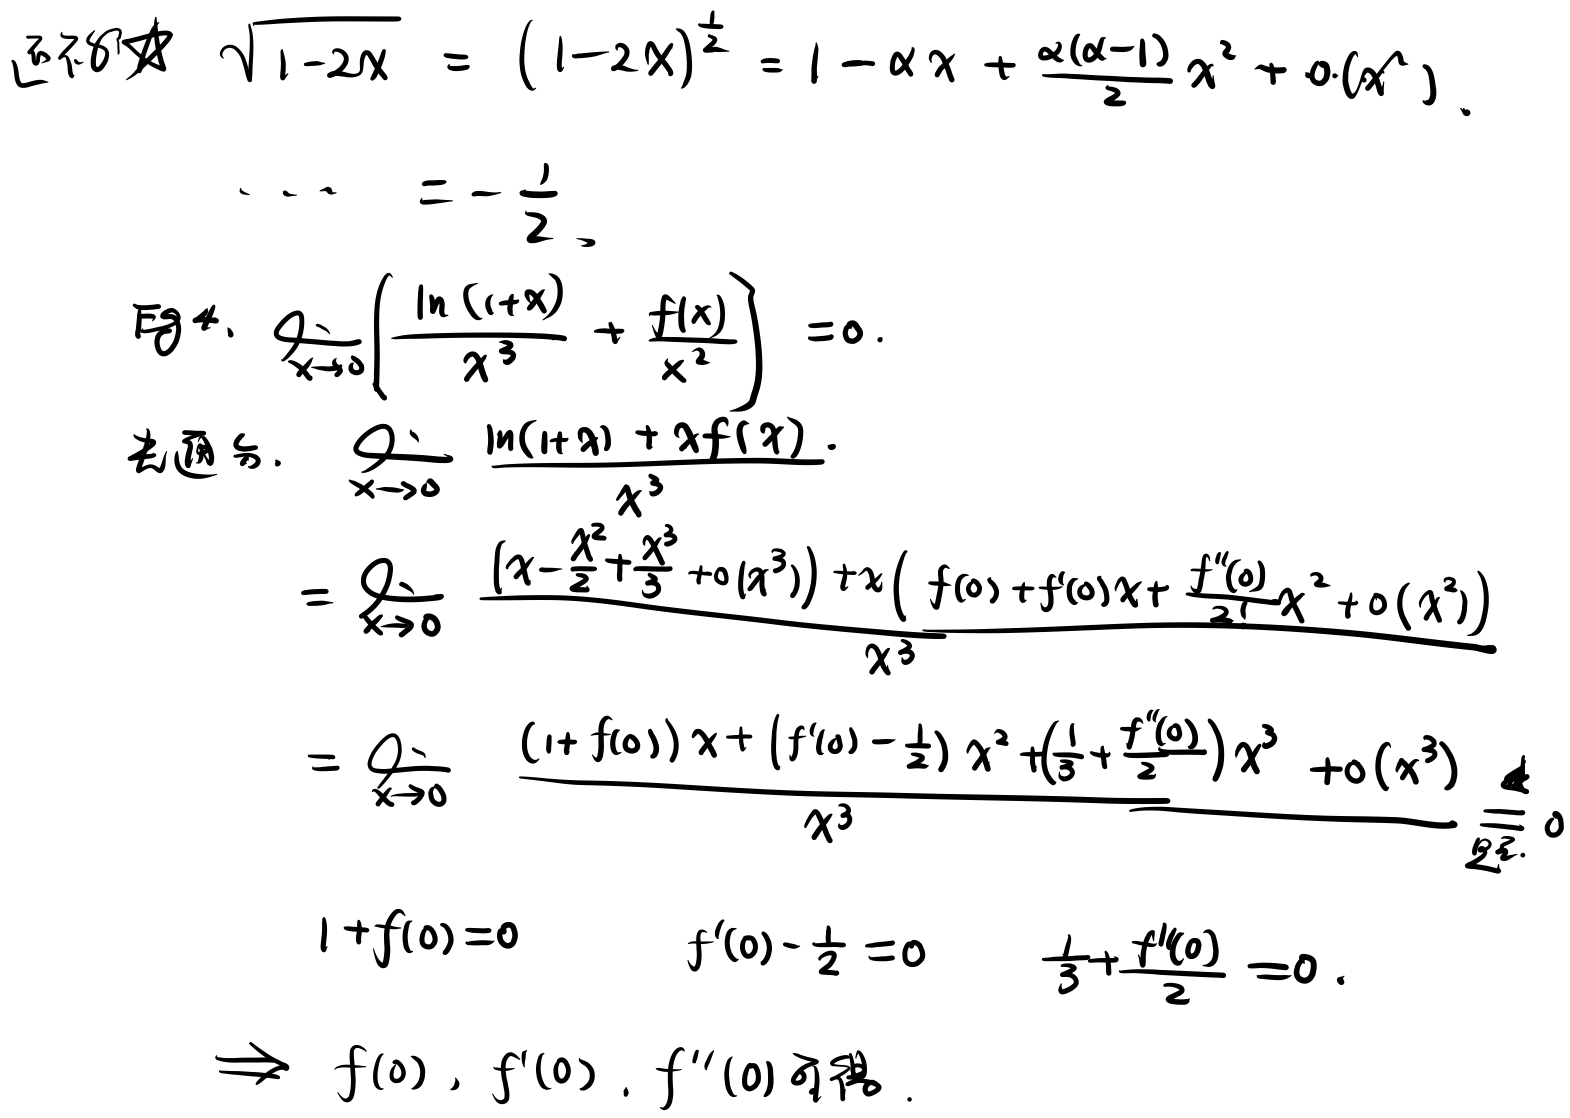 还不够☆ √(1-2x) = (1-2x)^{1/2} = 1 - αx + α(α-1)/2 x² + o(x²).
... = -1/2.
Eg 4. lim_{x→0} ( ln(1+x)/x³ + f(x)/x² ) = 0.
先通分. lim_{x→0} (ln(1+x) + xf(x))/x³.
= lim_{x→0} ((x - x²/2 + x³/3 + o(x³)) + x(f(0) + f'(0)x + f''(0)/2! x² + o(x²)))/x³
= lim_{x→0} ((1+f(0))x + (f'(0) - 1/2)x² + (1/3 + f''(0)/2)x³ + o(x³))/x³ = 0
1+f(0)=0 f'(0) - 1/2 = 0 1/3 + f''(0)/2 = 0.
⇒ f(0), f'(0), f''(0) 可得.